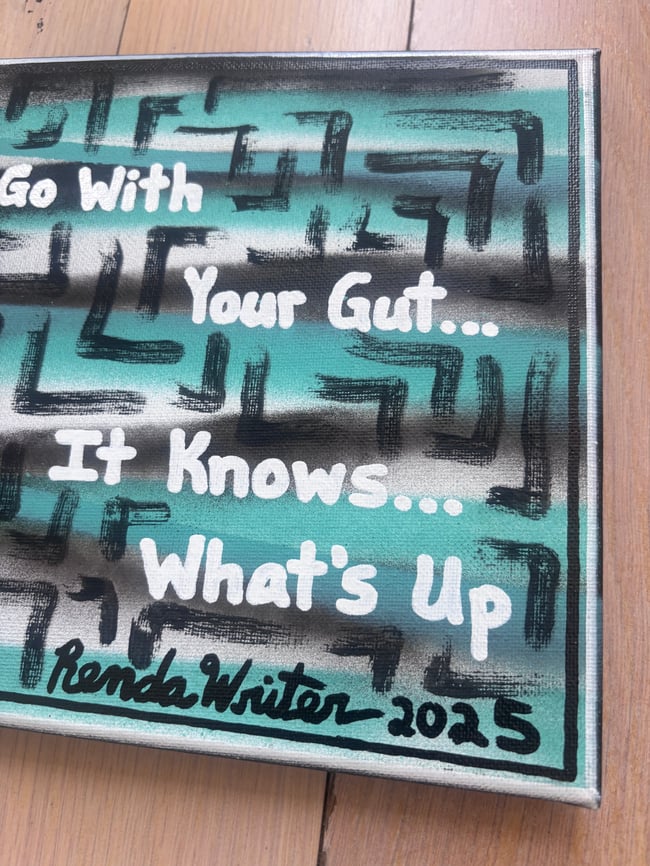 Go With
Your Gut...
It Knows...
What's Up
Renda Writer 2025